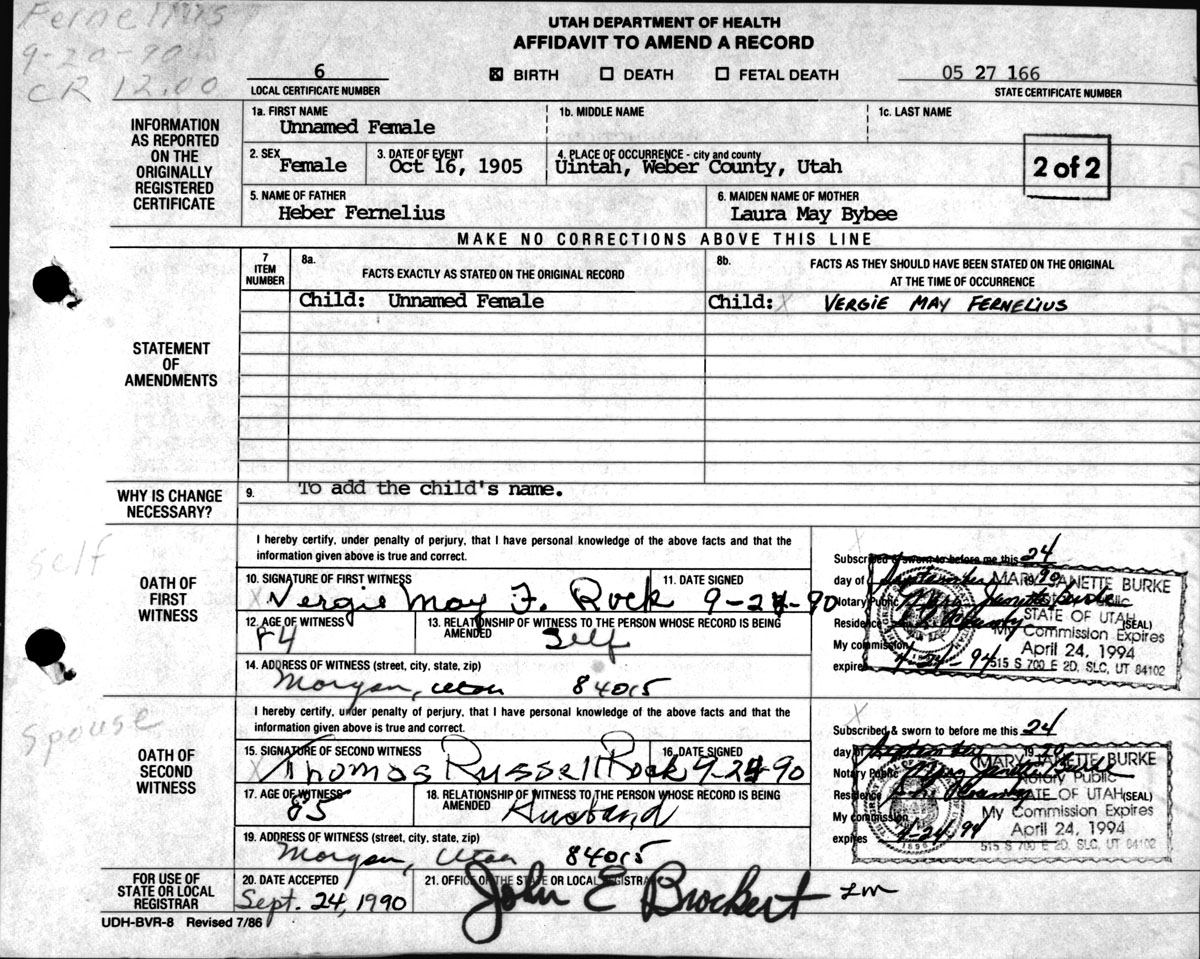 Fernelius
9-20-90
CR 12.00
UTAH DEPARTMENT OF HEALTH
AFFIDAVIT TO AMEND A RECORD
6
LOCAL CERTIFICATE NUMBER
☒ BIRTH ☐ DEATH ☐ FETAL DEATH
05 27 166
STATE CERTIFICATE NUMBER
INFORMATION
AS REPORTED
ON THE
ORIGINALLY
REGISTERED
CERTIFICATE
1a. FIRST NAME
Unnamed Female
1b. MIDDLE NAME
1c. LAST NAME
2. SEX
Female
3. DATE OF EVENT
Oct 16, 1905
4. PLACE OF OCCURRENCE - city and county
Uintah, Weber County, Utah
2 of 2
5. NAME OF FATHER
Heber Fernelius
6. MAIDEN NAME OF MOTHER
Laura May Bybee
MAKE NO CORRECTIONS ABOVE THIS LINE
STATEMENT
OF
AMENDMENTS
7
ITEM
NUMBER
8a.
FACTS EXACTLY AS STATED ON THE ORIGINAL RECORD
8b.
FACTS AS THEY SHOULD HAVE BEEN STATED ON THE ORIGINAL
AT THE TIME OF OCCURRENCE
Child: Unnamed Female
Child: X VERGIE MAY FERNELIUS
WHY IS CHANGE
NECESSARY?
9. To add the child's name.
self
OATH OF
FIRST
WITNESS
I hereby certify, under penalty of perjury, that I have personal knowledge of the above facts and that the
information given above is true and correct.
10. SIGNATURE OF FIRST WITNESS
X Vergie May F. Rock
11. DATE SIGNED
9-24-90
12. AGE OF WITNESS
84
13. RELATIONSHIP OF WITNESS TO THE PERSON WHOSE RECORD IS BEING
AMENDED
Self
14. ADDRESS OF WITNESS (street, city, state, zip)
Morgan, Utah 84015
X
Subscribed & sworn to before me this 24
day of September 1990
Notary Public
Residence
(SEAL)
My commission
expires 4-24-94
MARY JANETTE BURKE
Notary Public
STATE OF UTAH
My Commission Expires
April 24, 1994
515 S 700 E 2D, SLC, UT 84102
Spouse
OATH OF
SECOND
WITNESS
I hereby certify, under penalty of perjury, that I have personal knowledge of the above facts and that the
information given above is true and correct.
15. SIGNATURE OF SECOND WITNESS
X Thomas Russell Rock
16. DATE SIGNED
9-24-90
17. AGE OF WITNESS
85
18. RELATIONSHIP OF WITNESS TO THE PERSON WHOSE RECORD IS BEING
AMENDED
Husband
19. ADDRESS OF WITNESS (street, city, state, zip)
Morgan, Utah 84015
X
Subscribed & sworn to before me this 24
day of September 1990
Notary Public
Residence
(SEAL)
My commission
expires 4-24-94
MARY JANETTE BURKE
Notary Public
STATE OF UTAH
My Commission Expires
April 24, 1994
515 S 700 E 2D, SLC, UT 84102
FOR USE OF
STATE OR LOCAL
REGISTRAR
20. DATE ACCEPTED
Sept. 24, 1990
21. OFFICE OF THE STATE OR LOCAL REGISTRAR
John E Brockert
UDH-BVR-8 Revised 7/86